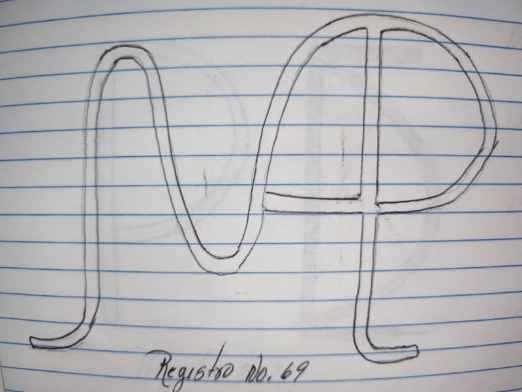 Registro No. 69